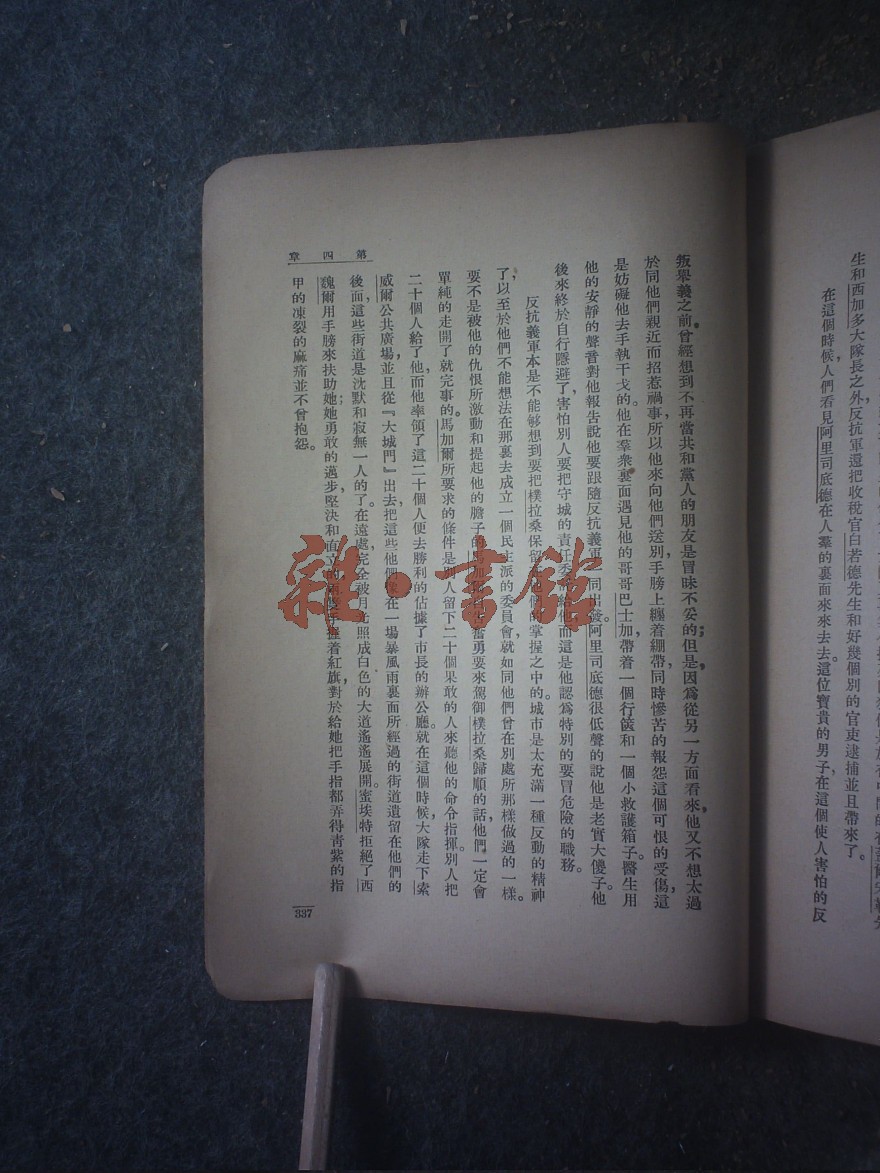 生和西加多大隊長之外，反抗軍還把收稅官白若德先生和好幾個別的官吏逮捕並且帶來了。
在這個時候，人們看見阿里司底德在人羣的裏面來來去去。這位寶貴的男子在這個使人害怕的反
叛舉義之前，曾經想到不再當共和黨人的朋友是冒昧不妥的；但是，因爲從另一方面看來，他又不想太過
於同他們親近而招惹禍事，所以他來向他們送別，手膀上纏着綳帶，同時慘苦的報怨這個可恨的受傷，這
是妨礙他去手執干戈的。他在羣衆裏面遇見他的哥哥巴士加，帶着一個行篋和一個小救護箱子。醫生用
他的安靜的聲音對他報告說他要跟隨反抗義軍
同出發。阿里司底德很低聲的說他是老實大傻子。他
後來終於自行隱避了，害怕別人要把守城的責任委
給他，而這是他認爲特別的要冒危險的職務。
反抗義軍本是不能够想到要把樸拉桑保留
他們的掌握之中的。城市是太充滿一種反動的精神
了，以至於他們不能想法在那裏去成立一個民主派的委員會，就如同他們曾在別處所那樣做過的一樣。
要不是被他的仇恨所激動和提起他的膽子的
奮勇要來駕御樸拉桑歸順的話，他們一定會
單純的走開了就完事的。馬加爾所要求的條件是
人留下二十個果敢的人來聽他的命令指揮。別人把
二十個人給了他，而他率領了這二十個人便去勝利的佔據了市長的辦公廳。就在這個時候，大隊走下索
威爾公共廣場，並且從『大城門』出去，把這些他們
在一場暴風雨裏面所經過的街道遺留在他們的
後面，這些街道是沈默和寂無一人的了。在遠處，完全被月光照成白色的大道遙遙展開。蜜埃特拒絕了西
魏爾用手膀來扶助她；她勇敢的邁步，堅決和面立的，兩隻手握着紅旗，對於給她把手指都弄得青紫的指
甲的凍裂的麻痛並不曾抱怨。
第四章
337
雜·書館